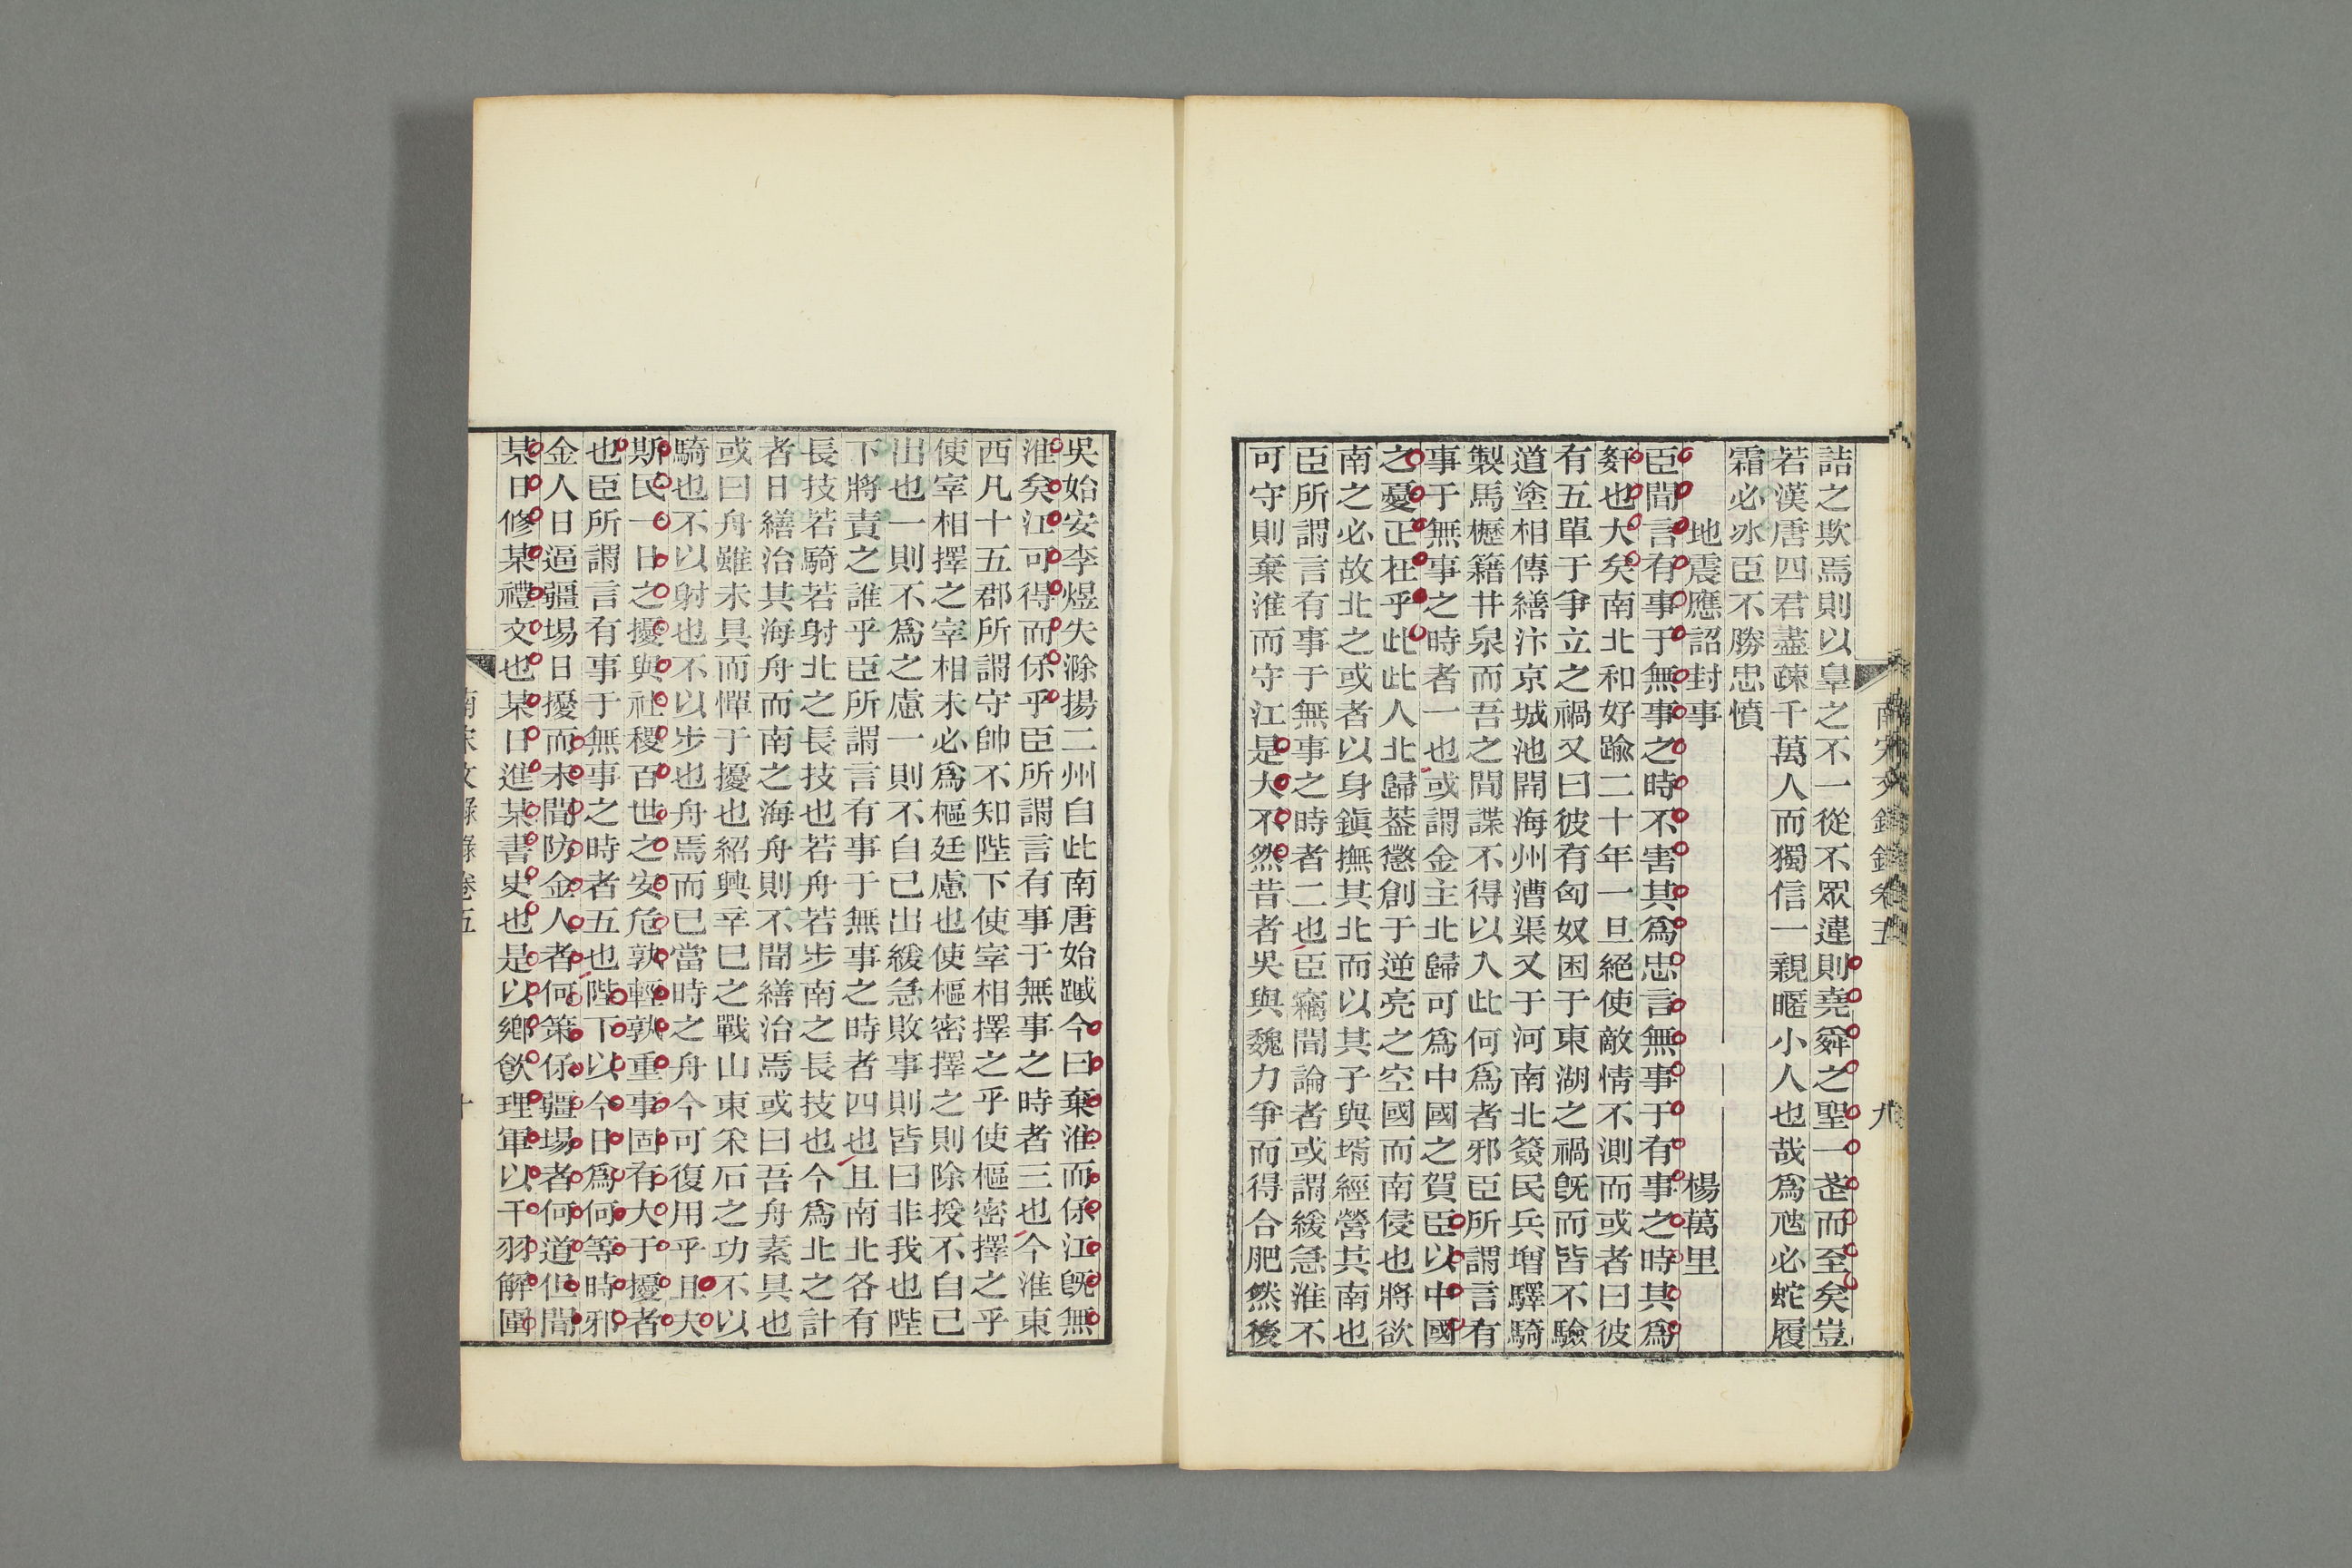 詰之欺焉則以臯之不一從不眾違則堯舜之聖一蹴而至矣豈
若漢唐四君盡疎千萬人而獨信一親暱小人也哉爲虺必蛇履
霜必冰臣不勝忠憤
地震應詔封事　楊萬里
臣聞言有事于無事之時不害其爲忠言無事于有事之時其爲
姧也大矣南北和好踰二十年一旦絕使敵情不測而或者曰彼
有五單于爭立之禍又曰彼有匈奴困于東湖之禍旣而皆不驗
道塗相傳繕汴京城池開海州漕渠又于河南北簽民兵增驛騎
製馬櫪籍井泉而吾之間諜不得以入此何爲者邪臣所謂言有
事于無事之時者一也或謂金主北歸可爲中國之賀臣以中國
之憂正在乎此此人北歸葢懲創于逆亮之空國而南侵也將欲
南之必故北之或者以身鎭撫其北而以其子與壻經營其南也
臣所謂言有事于無事之時者二也臣竊聞論者或謂緩急淮不
可守則棄淮而守江是大不然昔者吳與魏力爭而得合肥然後
南宋文錄錄卷五　九
吳始安李煜失滁揚二州自此南唐始蹙今曰棄淮而保江旣無
淮矣江可得而保乎臣所謂言有事于無事之時者三也今淮東
西凡十五郡所謂守帥不知陛下使宰相擇之乎使樞密擇之乎
使宰相擇之宰相未必爲樞廷慮也使樞密擇之則除授不自己
出也一則不爲之慮一則不自己出緩急敗事則皆曰非我也陛
下將責之誰乎臣所謂言有事于無事之時者四也且南北各有
長技若騎若射北之長技也若舟若步南之長技也今爲北之計
者日繕治其海舟而南之海舟則不聞繕治焉或曰吾舟素具也
或曰舟雖未具而憚于擾也紹興辛巳之戰山東采石之功不以
騎也不以射也不以步也舟焉而已當時之舟今可復用乎且夫
斯民一日之擾與社稷百世之安危孰輕孰重事固有大于擾者
也臣所謂言有事于無事之時者五也陛下以今日爲何等時邪
金人日逼疆場日擾而未聞防金人者何策保疆場者何道但聞
某日修某禮文也某日進某書史也是以鄉飮理軍以干羽解圍
南宋文錄錄卷五　十